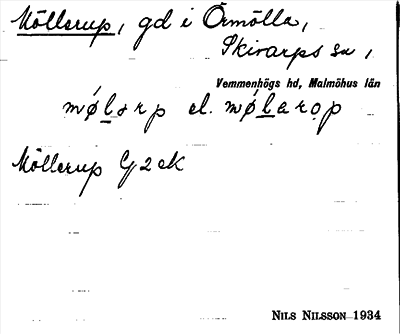 Möllerup, gd i Örmölla,
Skivarps sn,
Vemmenhögs hd, Malmöhus län
mølɘrp el. mølarop
Möllerup G 2 ek
NILS NILSSON 1934